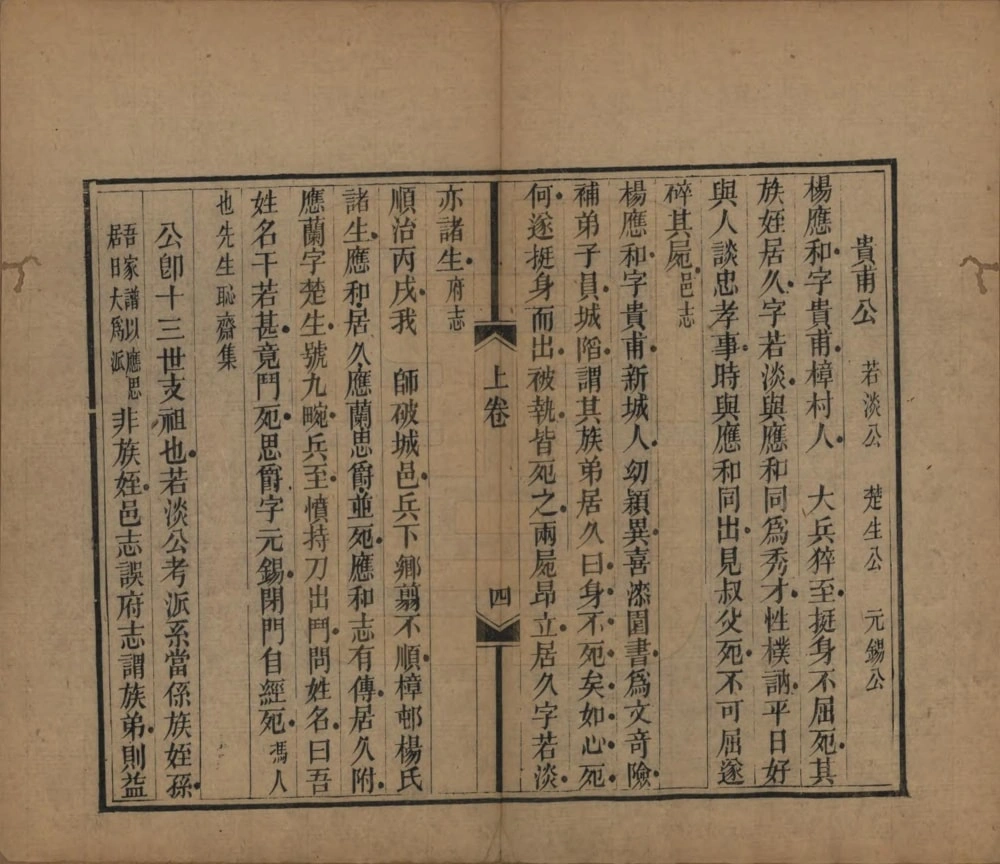 貴甫公　若淡公　楚生公　元錫公
楊應和字貴甫樟村人　大兵猝至挺身不屈死其
族姪居久字若淡與應和同為秀才性樸訥平日好
與人談忠孝事時與應和同出見叔父死不可屈遂
碎其屍邑志
楊應和字貴甫新城人幼穎異喜漆園書為文奇險
補弟子員城陷謂其族弟居久曰身不死矣如心死
何遂挺身而出被執皆死之兩屍昂立居久字若淡
上卷　四
亦諸生府志
順治丙戌我　師破城邑兵下鄉翦不順樟邨楊氏
諸生應和居久應蘭思爵並死應和志有傳居久附
應蘭字楚生號九畹兵至憤持刀出鬥問姓名曰吾
姓名干若甚竟鬥死思爵字元錫閉門自經死馮人
也先生恥齋集
公卽十三世支祖也若淡公考派系當係族姪孫
吾家譜以應思
居日大為派
非族姪邑志誤府志謂族弟則益